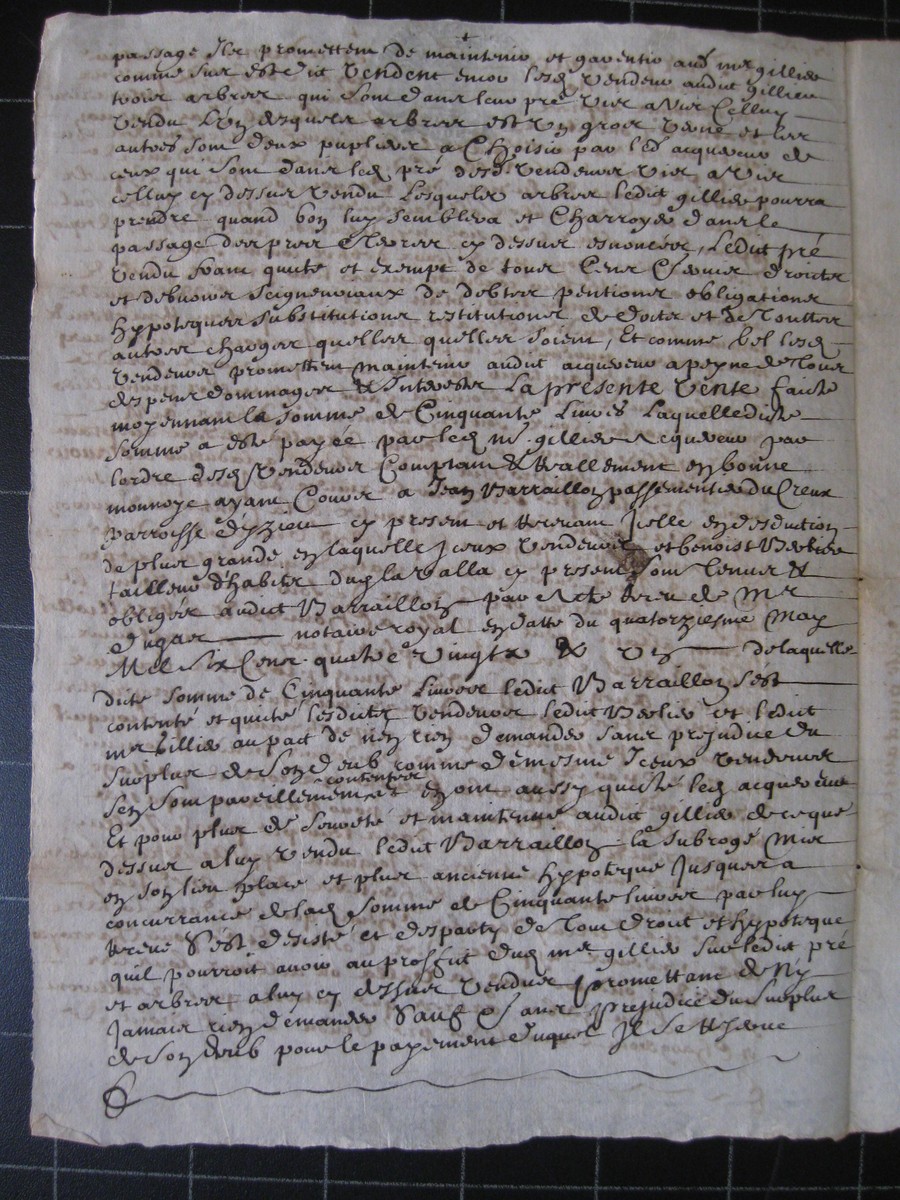 passage Ilz promettent de maintenir et garentir aud mre gillier
comme sus est dit Vendent encor lesd Vendeur audit gillier
trois arbres qui sont dans leur pré vis a vis Celluy
Vendu Lun desquels arbres est Un gros Verne et les
autres sont deux pupliers a Choisir par led acqueveur de
ceux qui sont dans led pré desd Vendeurs vis a vis
celluy cy dessus vendu Lesquels arbres ledict gillier pourra
prendre quand bon luy semblera et Charroyer dans le
passage des prés et terres cy dessus enoncés, Ledit pré
Vendu franc quitte et exempt de tous Cens Servis droicts
et debvoirs seigneuriaux de debtes pentions obligations
hypoteques substitutions restitutions de doctes et de touttes
autres charges quelles quelles soient, Et comme tel lesd
Vendeurs promettent maintenir audit acqueveur a peyne de tous
despens dommages & Interests La presente Vente faicte
moyennant la somme de Cinquante Livres Laquelle dicte
somme a esté payée par led mre gillier acqueveur par
lordre desd Vendeurs Comptant & reallement en bonne
monnoye ayant Cours a Jean Barraillon passementier du Creux
parroisse dyzieu cy present et recevant Icelle en desduction
de plus grande en laquelle Iceux Vendeurs et benoist Verlier
tailleur dhabits dud la valla cy present sont tenus &
obligés audict Barraillon par acte receu de Mre
Dugas notaire royal en datte du quatorziesme May
Mil six Cens quatre Vingts & de laquelle
dicte somme de Cinquante livres ledict Barraillon sest
contenté et quitté lesdicts Vendeurs ledict Verlier et ledict
mre Gillier au pact de nen rien demander sans prejudice du
surplus de son deub comme de mesme Iceux Vendeurs
sen sont pareillement contentés et en ont aussy quitté led acqueveur
Et pour plus de seureté et maintenue audict gillier de ce que
dessus a luy Vendu ledict Barraillon la subrogé mis
en son lieu place et plus ancienne hypoteque Jusques a
concurrance de lad somme de Cinquante livres par luy
receue sest desisté et desparty de tout droict et hypoteque
quil pourroit avoir au proffit dud mre gillier sur ledict pré
et arbres a luy cy dessus Vendus promettant de ny
Jamais rien demander sauf & sans prejudice du surplus
de son deub pour le payement duquel Il se reserve